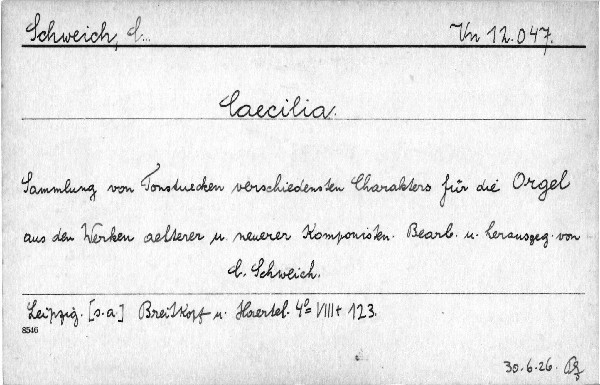 Schweich, C... Vn 12.047.
Caecilia.
Sammlung von Tonstuecken verschiedensten Charakters für die Orgel
aus den Werken aelterer u. neuerer Komponisten. Bearb. u. herausgeg. von
C. Schweich.
Leipzig. [s.a.] Breitkopf u. Haertel. 4º VIII + 123.
8546
30.6.26.